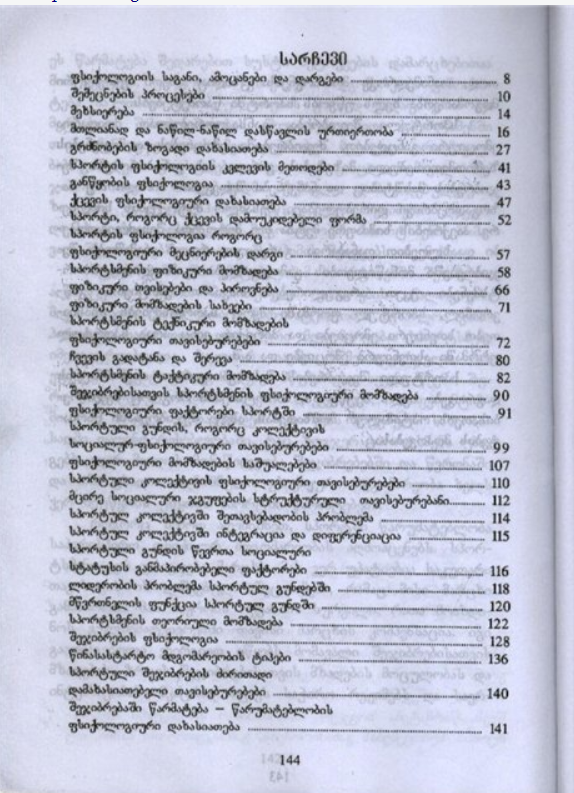 სარჩევი
ფსიქოლოგიის საგანი, ამოცანები და დარგები 8
შემეცნების პროცესები 10
მეხსიერება 14
მთლიანად და ნაწილ-ნაწილ დასწავლის ურთიერთობა 16
გრძნობების ზოგადი დახასიათება 27
სპორტის ფსიქოლოგიის კვლევის მეთოდები 41
განწყობის ფსიქოლოგია 43
ქცევის ფსიქოლოგიური დახასიათება 47
სპორტი, როგორც ქცევის დამოუკიდებელი ფორმა 52
სპორტის ფსიქოლოგია როგორც
ფსიქოლოგიური მეცნიერების დარგი 57
სპორტსმენის ფიზიკური მომზადება 58
ფიზიკური თვისებები და პიროვნება 66
ფიზიკური მომზადების სახეები 71
სპორტსმენის ტექნიკური მომზადების
ფსიქოლოგიური თავისებურებები 72
ჩვევის გადატანა და შერევა 80
სპორტსმენის ტაქტიკური მომზადება 82
შეჯიბრებისათვის სპორტსმენის ფსიქოლოგიური მომზადება 90
ფსიქოლოგიური ფაქტორები სპორტში 91
სპორტული გუნდის, როგორც კოლექტივის
სოციალურ-ფსიქოლოგიური თავისებურებები 99
ფსიქოლოგიური მომზადების საშუალებები 107
სპორტული კოლექტივის ფსიქოლოგიური თავისებურებები 110
მცირე სოციალური ჯგუფების სტრუქტურული თავისებურებანი 112
სპორტულ კოლექტივში შეთავსებადობის პრობლემა 114
სპორტულ კოლექტივში ინტეგრაცია და დიფერენციაცია 115
სპორტული გუნდის წევრთა სოციალური
სტატუსის განმაპირობებელი ფაქტორები 116
ლიდერობის პრობლემა სპორტულ გუნდებში 118
მწვრთნელის ფუნქცია სპორტულ გუნდში 120
სპორტსმენის თეორიული მომზადება 122
შეჯიბრების ფსიქოლოგია 128
წინასასტარტო მდგომარეობის ტიპები 136
სპორტული შეჯიბრების ძირითადი
დამახასიათებელი თავისებურებები 140
შეჯიბრებაში წარმატება – წარუმატებლობის
ფსიქოლოგიური დახასიათება 141
144